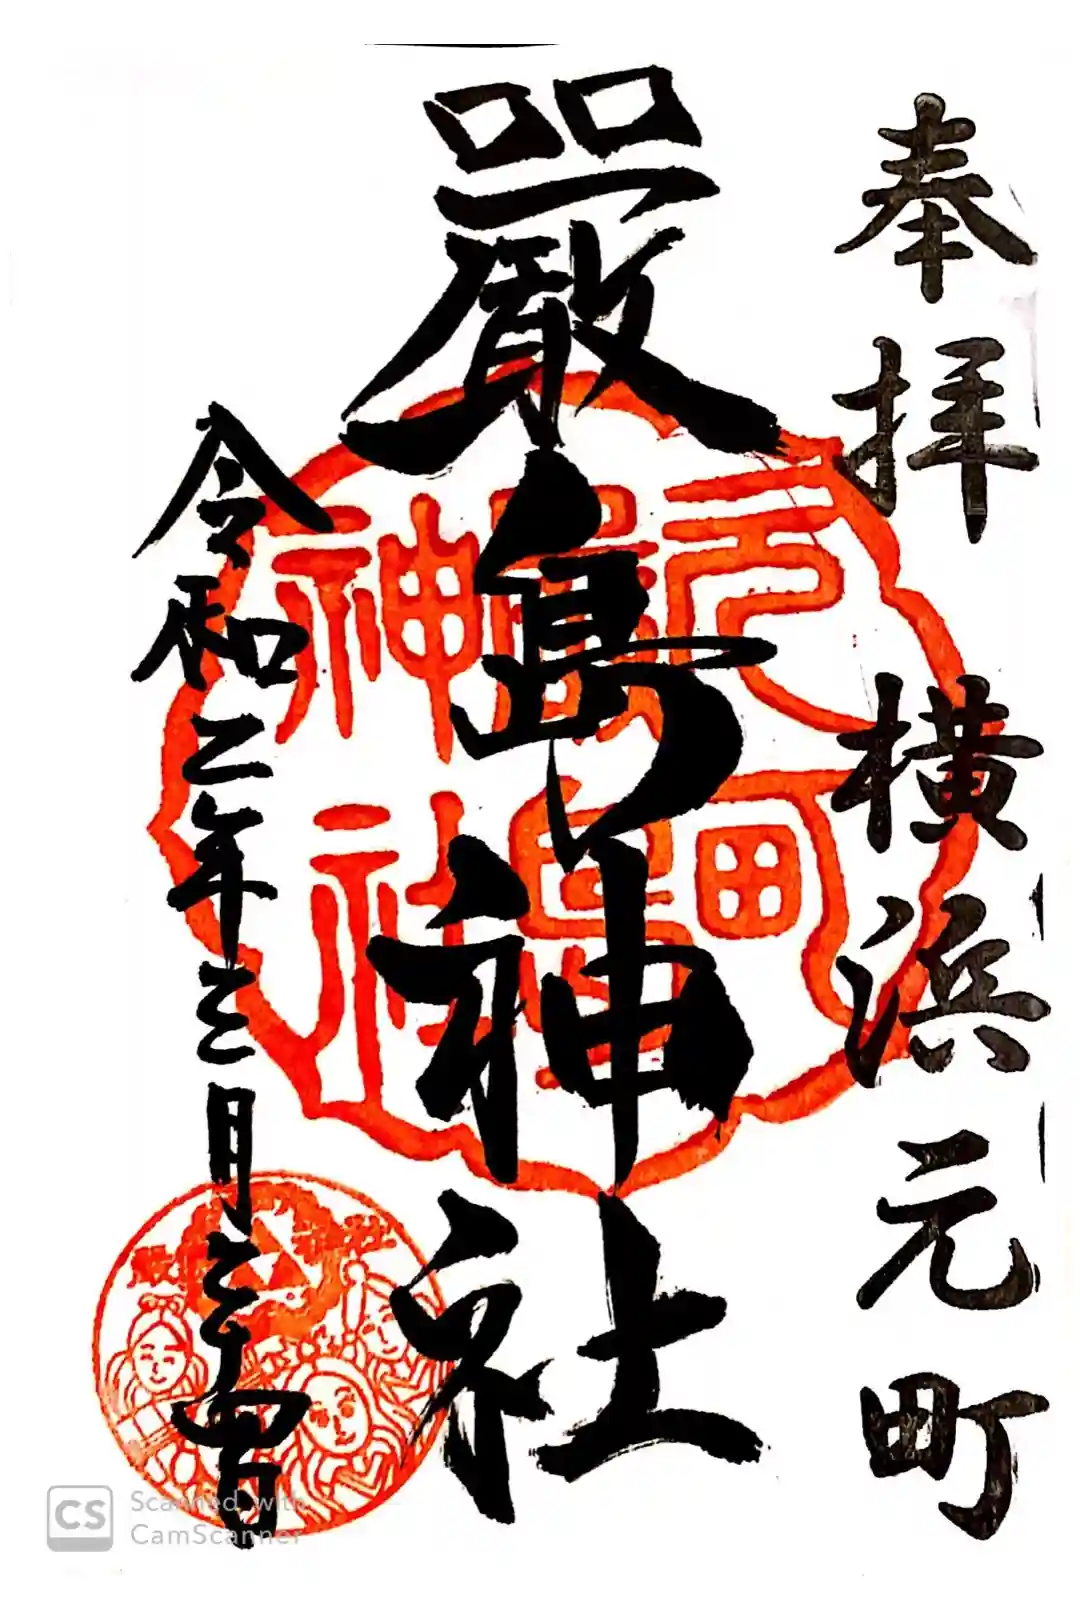 奉拝 横浜元町
嚴島神社
令和二年三月二十四日
元町
嚴島
神社
CS
Scanned with
CamScanner